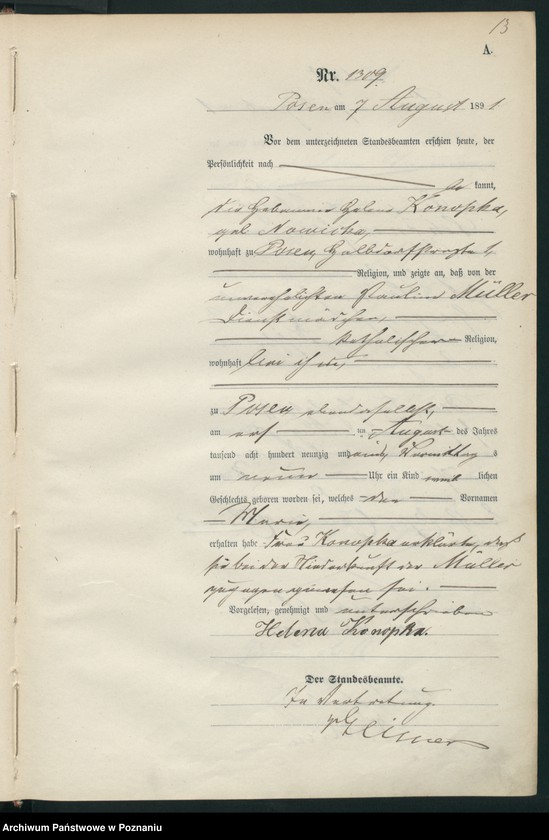 13
A.
Nr. 1309.
Posen am 7 August 1891
Vor dem unterzeichneten Standesbeamten erschien heute, der
Persönlichkeit nach
be kannt,
die Hebamme Helene Konopka,
geb. Nowicka,
wohnhaft zu Posen, Halbdorfstraße
Religion, und zeigte an, daß von der
unverehelichten Pauline Müller
Dienstmädchen,
katholischer Religion,
wohnhaft bei ihr,
zu Posen ebendaselbst,
am August des Jahres
tausend acht hundert neunzig und eins, Vormittag s
um neun Uhr ein Kind weib lichen
Geschlechts geboren worden sei, welches den Vornamen
Maria,
erhalten habe. Frau Konopka erklärte, daß
sie bei der Niederkunft der Müller
zugegen gewesen sei.
Vorgelesen, genehmigt und unterschrieben
Helena Konopka.
Der Standesbeamte.
In Vertretung.
Archiwum Państwowe w Poznaniu